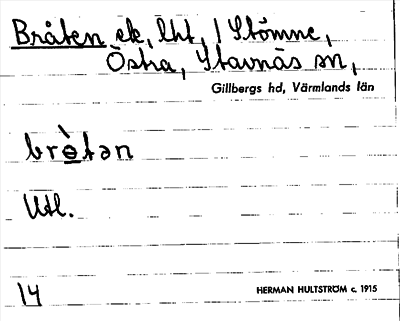 Bråten ek, lht, / Stömne,
Östra, Stavnäs sn,
Gillbergs hd, Värmlands län
brὼtən
Utl.
14
HERMAN HULTSTRÖM c. 1915